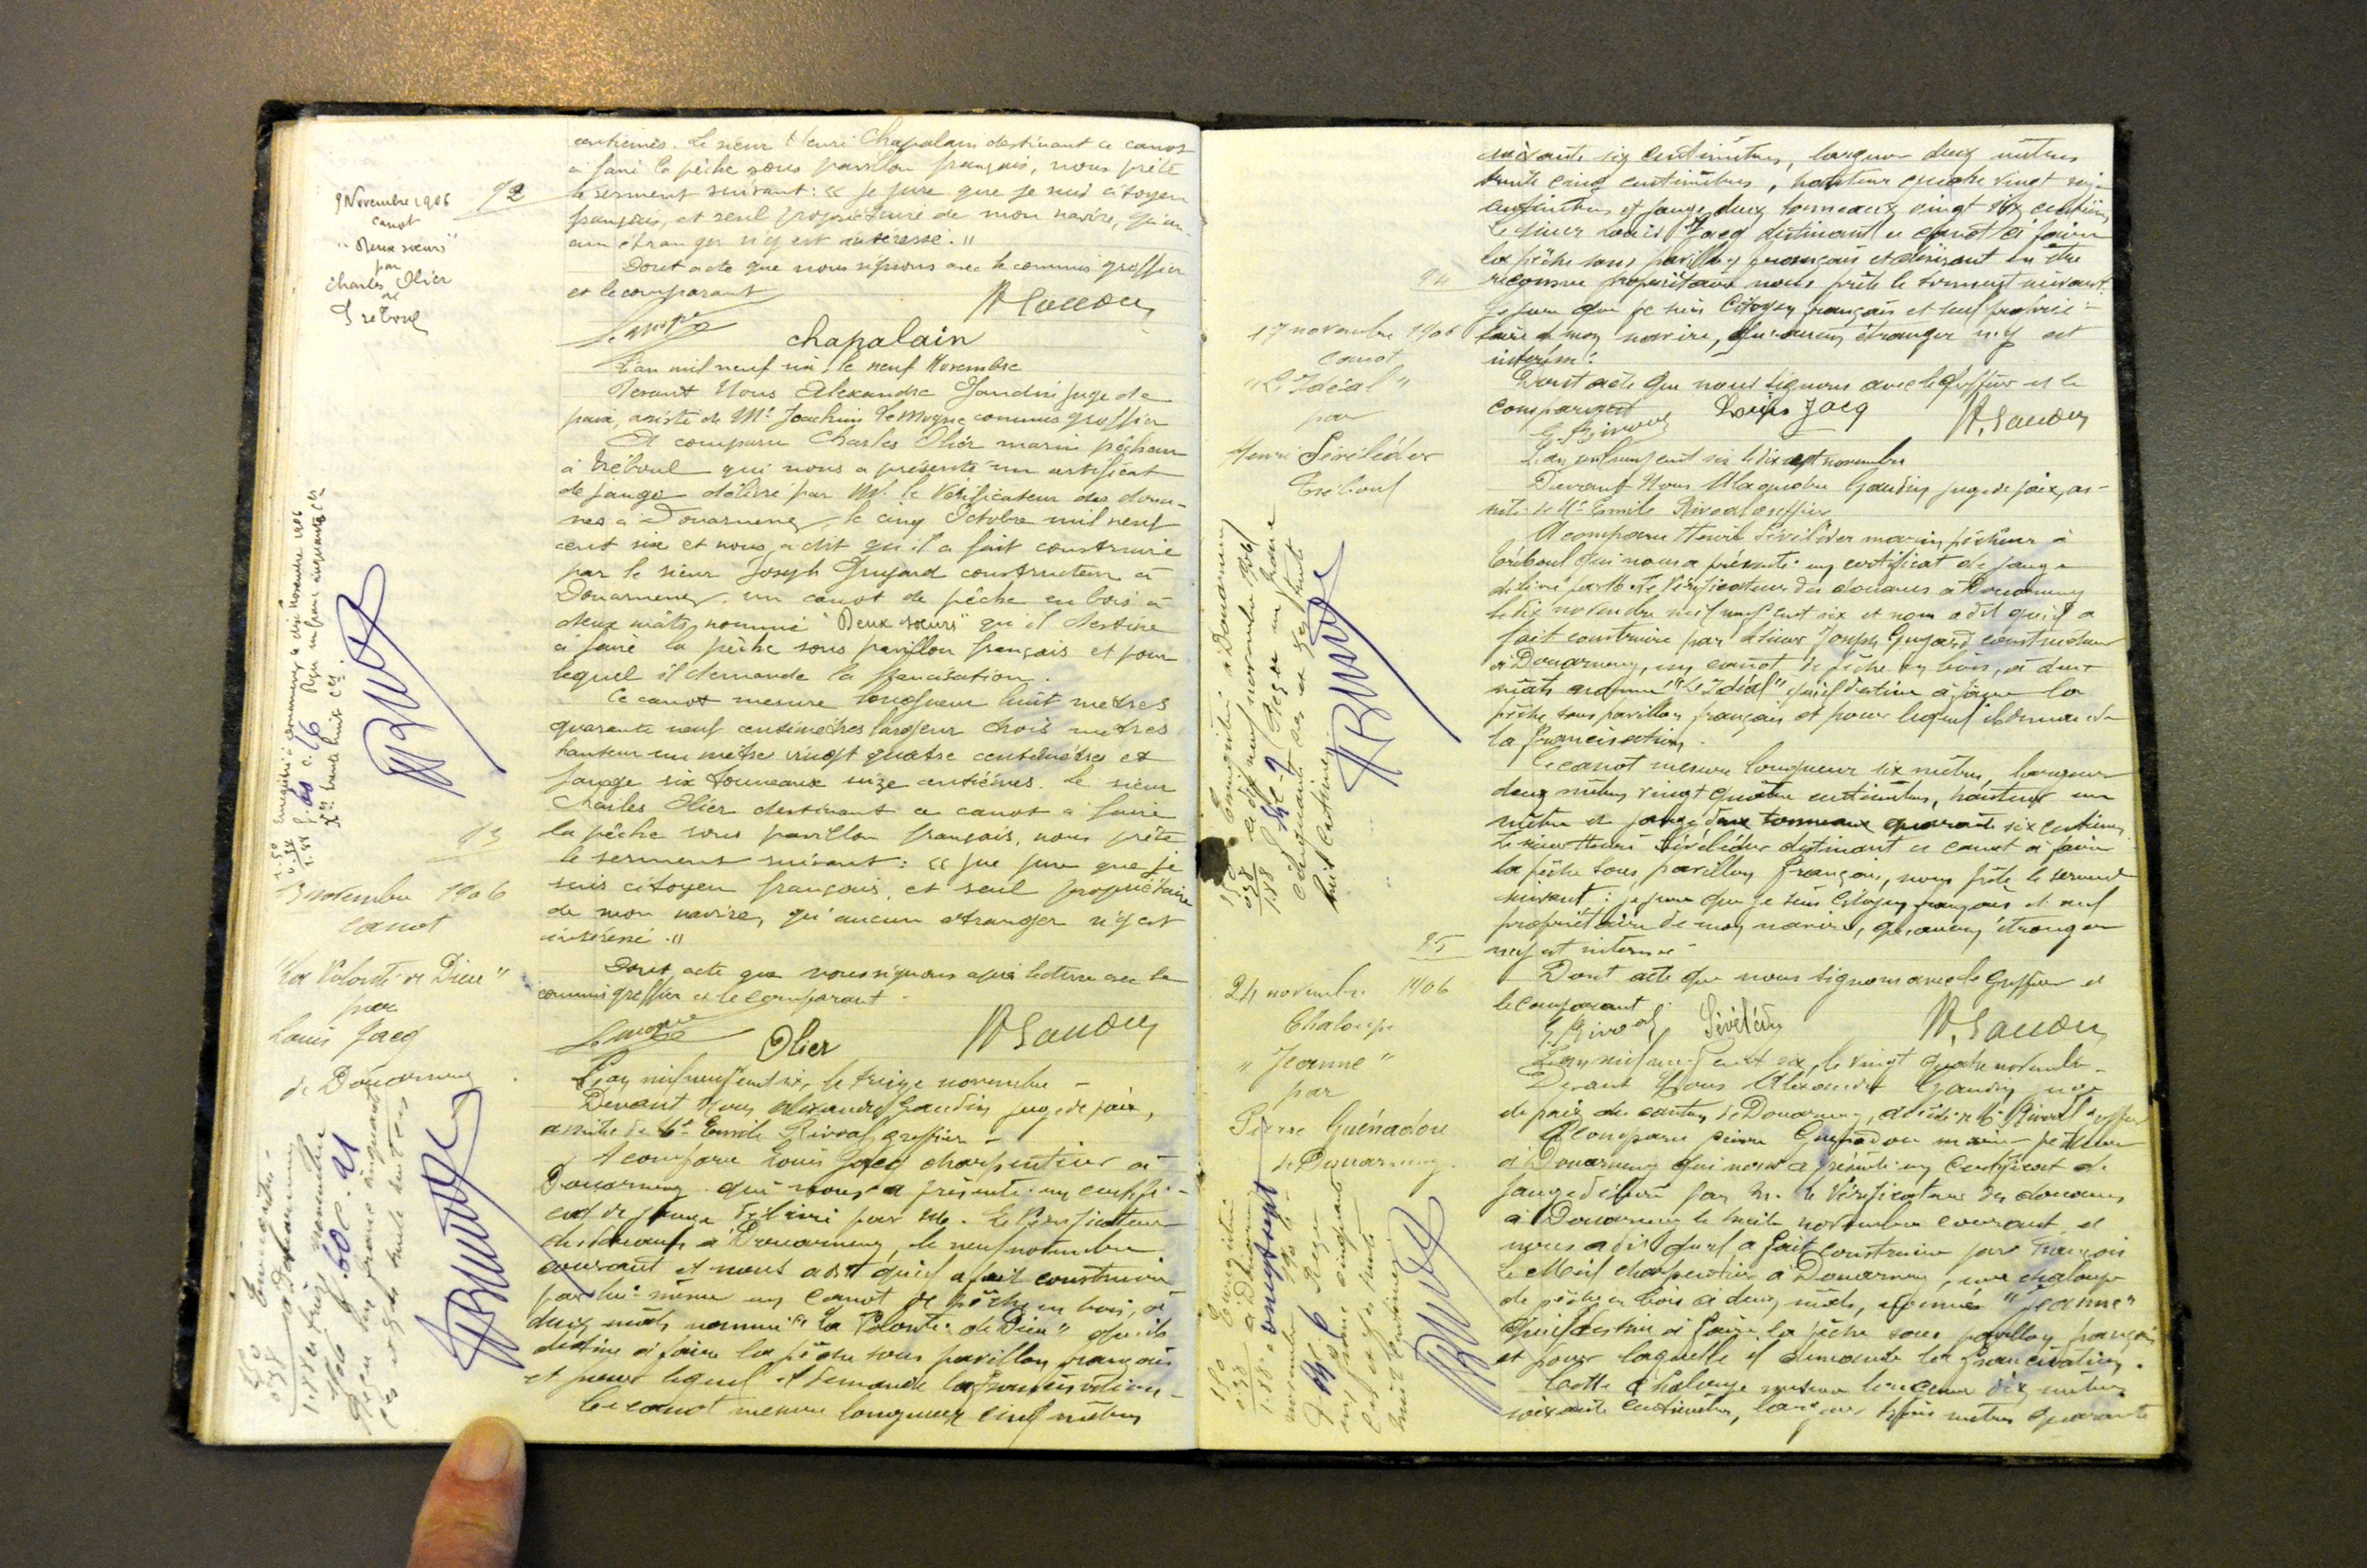 centièmes. Le sieur Henri Chapalain destinant ce canot
à faire la pêche sous pavillon français, nous prête
le serment suivant : « Je jure que je suis citoyen
français, et seul propriétaire de mon navire, qu'au-
cun étranger n'y est intéressé. "
Dont acte que nous signons avec le commis greffier
et le comparant
chapalain
9 Novembre 1906
canot
"Deux sœurs"
par
Charles Olier
de
Tréboul
92
L'an mil neuf six, le neuf Novembre
Devant Nous Alexandre Gaudin juge de
paix, assisté de Me Joachim Le Moigne commis greffier
A comparu Charles Olier marin pêcheur
à Tréboul qui nous a présenté un certificat
de jauge délivré par Mr. le Vérificateur des doua-
nes à Douarnenez, le cinq Octobre mil neuf
cent six et nous a dit qu'il a fait construire
par le sieur Joseph Gugard constructeur à
Douarnenez un canot de pêche en bois à
deux mâts, nommé "Deux sœurs" qu'il destine
à faire la pêche sous pavillon français et pour
lequel il demande la francisation.
Ce canot mesure longueur huit mètres
quarante neuf centimètres largeur trois mètres
hauteur un mètre vingt quatre centimètres et
jauge six tonneaux onze centièmes. Le sieur
Charles Olier destinant ce canot à faire
la pêche sous pavillon français, nous prête
le serment suivant : « que jure que je
suis citoyen français et seul propriétaire
de mon navire, qu'aucun étranger n'y est
intéressé. "
Dont acte que nous signons après lecture avec le
commis greffier et le comparant
Olier
Enregistré à Douarnenez le dix novembre 1906
93
13 novembre 1906
canot
"La Volonté de Dieu"
par
Louis Jacq
de Douarnenez
L'an mil neuf cent six, le treize novembre
Devant Nous Alexandre Gaudin juge de paix,
assisté de Me Emile Rivoal greffier
A comparu Louis Jacq charpentier à
Douarnenez qui nous a présenté un certifi-
cat de jauge délivré par M. le Vérificateur
des douanes à Douarnenez, le neuf novembre
courant et nous a dit qu'il a fait construire
par lui-même un canot de pêche en bois, à
deux mâts nommé "La Volonté de Dieu" qu'il
destine à faire la pêche sous pavillon français
et pour lequel il demande la francisation
Ce canot mesure longueur cinq mètres
soixante six centimètres, largeur deux mètres
trente cinq centimètres, hauteur quatre vingt
centimètres et jauge deux tonneaux vingt
Le sieur Louis Jacq destinant ce canot à faire
la pêche sous pavillon français et désirant en être
reconnu propriétaire nous prête le serment suivant
Je jure que je suis citoyen français et seul proprié-
taire de mon navire, qu'aucun étranger n'y est
intéressé.
Dont acte que nous signons avec le Greffier et le
comparant
Louis Jacq
94
17 novembre 1906
canot
"L'Idéal"
par
Henri Sévéléder
Tréboul
L'an mil neuf cent six le dix sept novembre
Devant Nous Alexandre Gaudin, juge de paix, as-
sisté de Me Emile Rivoal greffier
A comparu Henri Sévéléder marin pêcheur à
Tréboul qui nous a présenté un certificat de jauge
délivré par M. le Vérificateur des douanes à Douarnenez
le dix novembre mil neuf cent six et nous a dit qu'il a
fait construire par le sieur Joseph Gugard constructeur
à Douarnenez, un canot de pêche en bois, à deux
mâts nommé "L'Idéal" qu'il destine à faire la
pêche sous pavillon français et pour lequel il demande
la francisation.
Ce canot mesure longueur six mètres, largeur
deux mètres vingt quatre centimètres, hauteur un
mètre et jauge deux tonneaux quarante six centièmes
Le sieur Henri Sévéléder destinant ce canot à faire
la pêche sous pavillon français, nous prête le serment
suivant : je jure que je suis citoyen français et seul
propriétaire de mon navire, qu'aucun étranger
n'y est intéressé
Dont acte que nous signons avec le Greffier et
le comparant.
Sévéléder
95
24 novembre 1906
Chaloupe
"Jeanne"
par
Pierre Guénadou
de Douarnenez
L'an mil neuf cent six, le vingt quatre novembre
Devant Nous Alexandre Gaudin, juge
de paix du canton de Douarnenez, assisté de Me Rivoal greffier
A comparu Pierre Guénadou marin pêcheur
à Douarnenez qui nous a présenté un certificat de
jauge délivré par M. le Vérificateur des douanes
à Douarnenez le huit novembre courant et
nous a dit qu'il a fait construire par François
charpentier à Douarnenez, une chaloupe
de pêche en bois à deux mâts, nommée "Jeanne"
qu'il destine à faire la pêche sous pavillon français
et pour laquelle il demande la francisation.
Cette chaloupe mesure longueur dix mètres
soixante centimètres, largeur trois mètres quarante